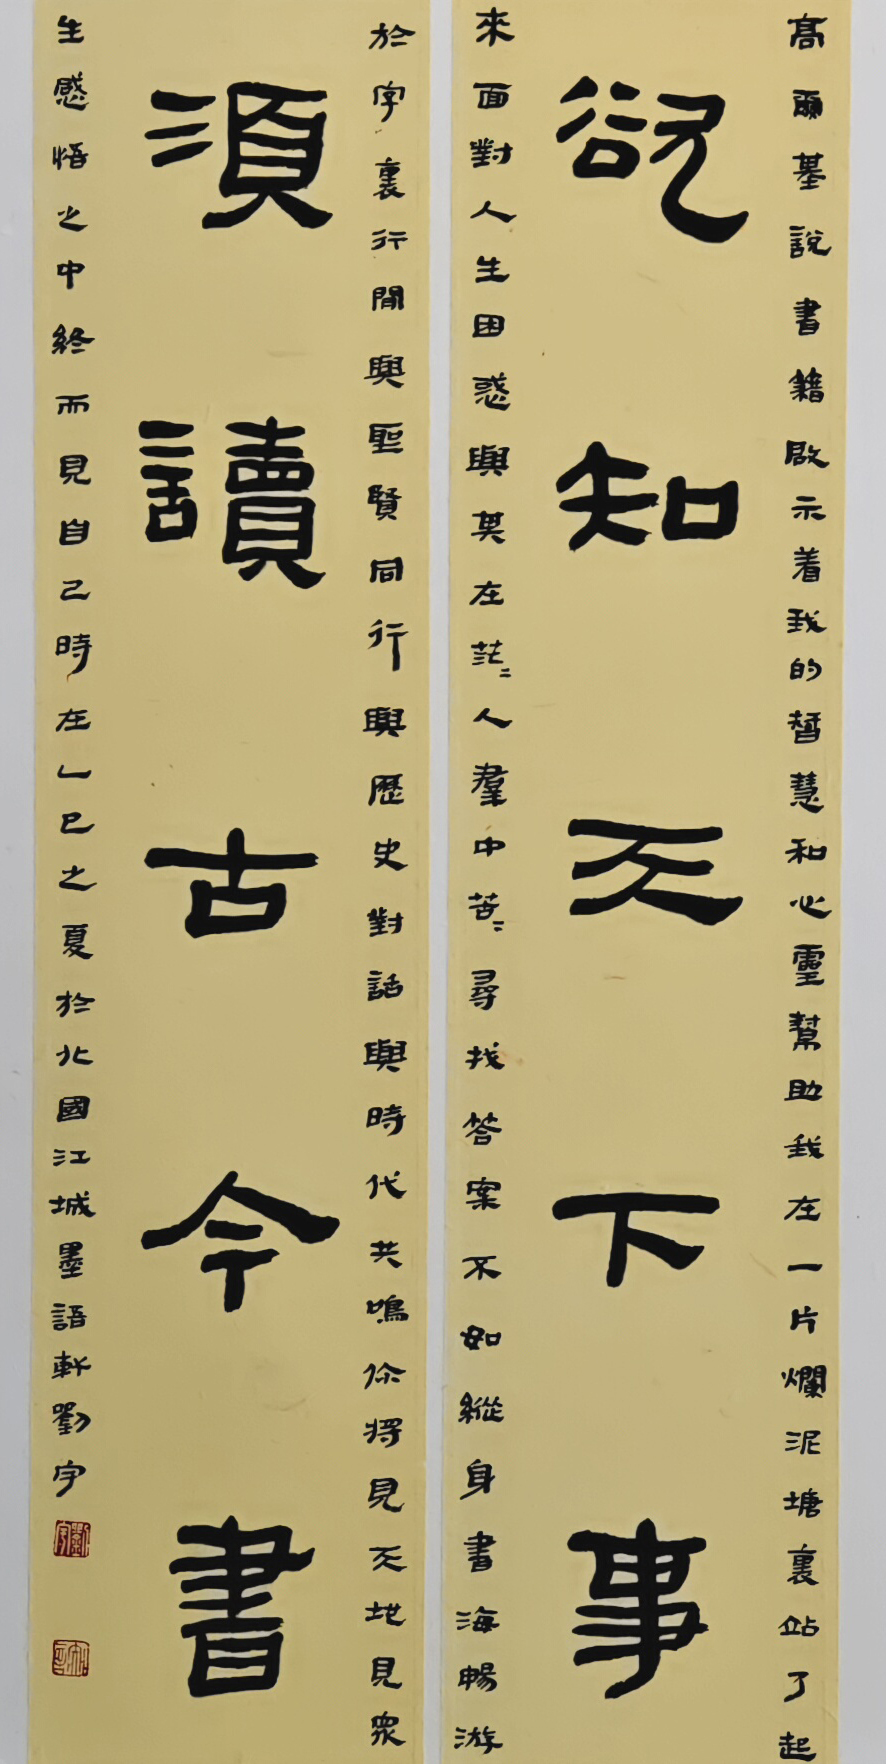 高爾基說書籍啟示着我的智慧和心靈幫助我在一片爛泥塘裏站了起
欲知天下事
來面對人生困惑與其在茫〻人羣中苦〻尋找答案不如縱身書海暢游
於字裏行間與聖賢同行與歷史對話與時代共鳴你將見天地見眾
須讀古今書
生感悟之中終而見自己時在乙巳之夏於北國江城墨語軒劉宇